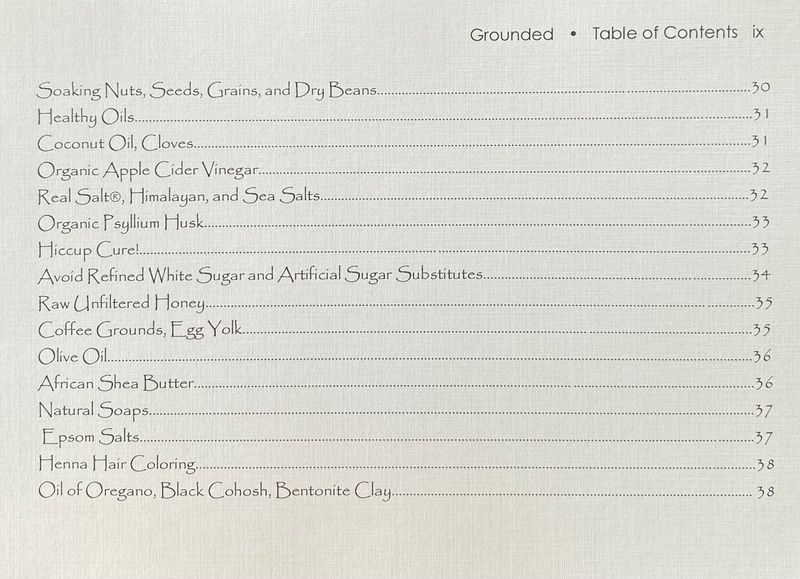 Grounded • Table of Contents ix
Soaking Nuts, Seeds, Grains, and Dry Beans....................30
Healthy Oils....................31
Coconut Oil, Cloves....................31
Organic Apple Cider Vinegar....................32
Real Salt®, Himalayan, and Sea Salts....................32
Organic Psyllium Husk....................33
Hiccup Cure!....................33
Avoid Refined White Sugar and Artificial Sugar Substitutes....................34
Raw Unfiltered Honey....................35
Coffee Grounds, Egg Yolk....................35
Olive Oil....................36
African Shea Butter....................36
Natural Soaps....................37
Epsom Salts....................37
Henna Hair Coloring....................38
Oil of Oregano, Black Cohosh, Bentonite Clay....................38